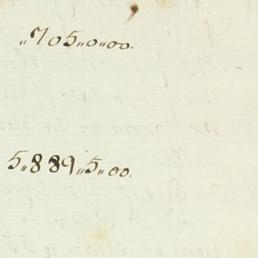 „705„0„00.
5„889„5„00.